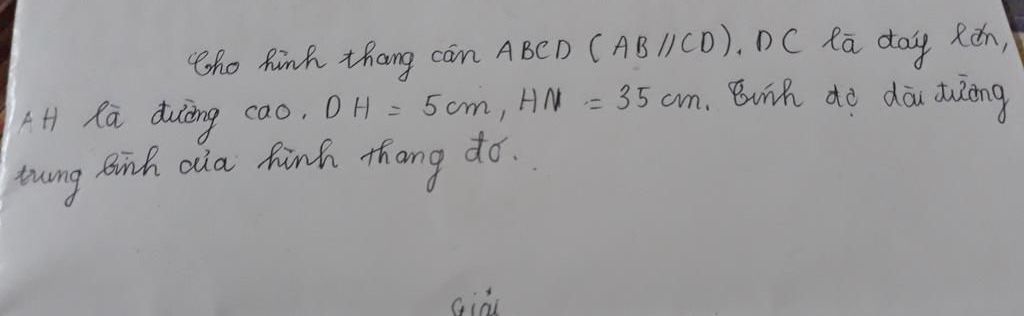 Cho hình thang cân ABCD (AB//CD). DC là đáy lớn,
AH là đường cao. DH = 5cm, HN = 35 cm. Tính độ dài đường
trung bình của hình thang đó.
Giải